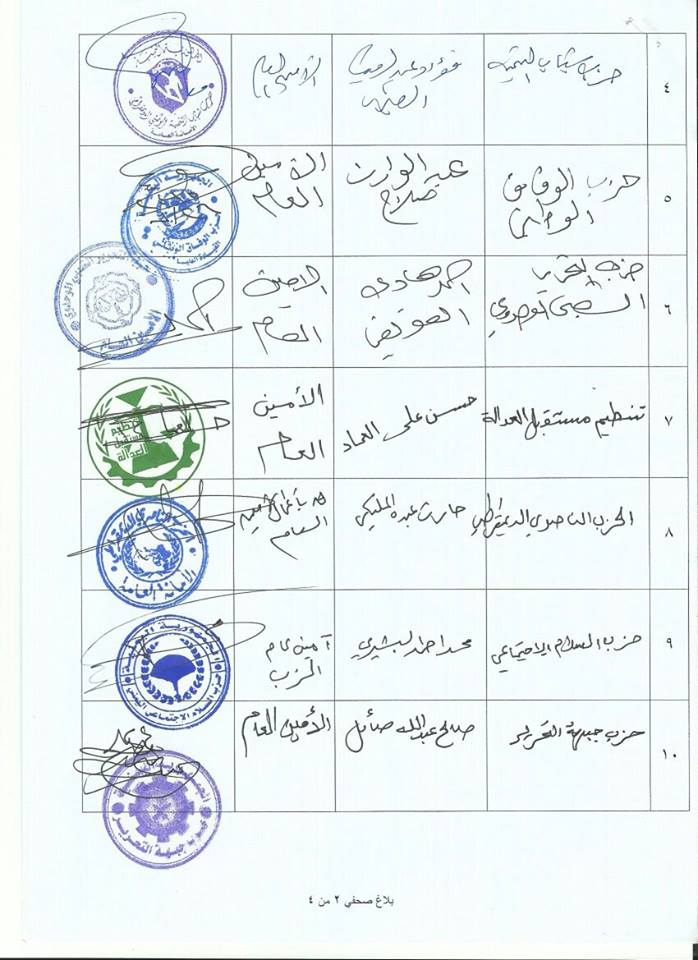 ٤
حزب شباب التنمية
فؤاد عبد
الأمين العام
٥
حزب الوفاق
الوطني
عبد الوارث
صلاح
الأمين
العام
الجمهورية اليمنية
حزب الوفاق الوطني
٦
حزب التحرير
الشعبي الوحدوي
احمد هادي
الامين
العام
الأمين العام
٧
تنظيم مستقبل العدالة
حسن علي العماد
الأمين
العام
تنظيم
مستقبل
العدالة
٨
الحزب الناصري الديمقراطي
حارث عبده المليكي
العام
الأمانة العامة
٩
حزب السلام الاجتماعي
محمد احمد البشيري
أمين عام
الحزب
الجمهورية اليمنية
حزب السلام الاجتماعي اليمني
١٠
حزب جبهة التحرير
صالح عبدالله صائل
الأمين العام
حزب جبهة التحرير
بلاغ صحفي ٢ من ٤